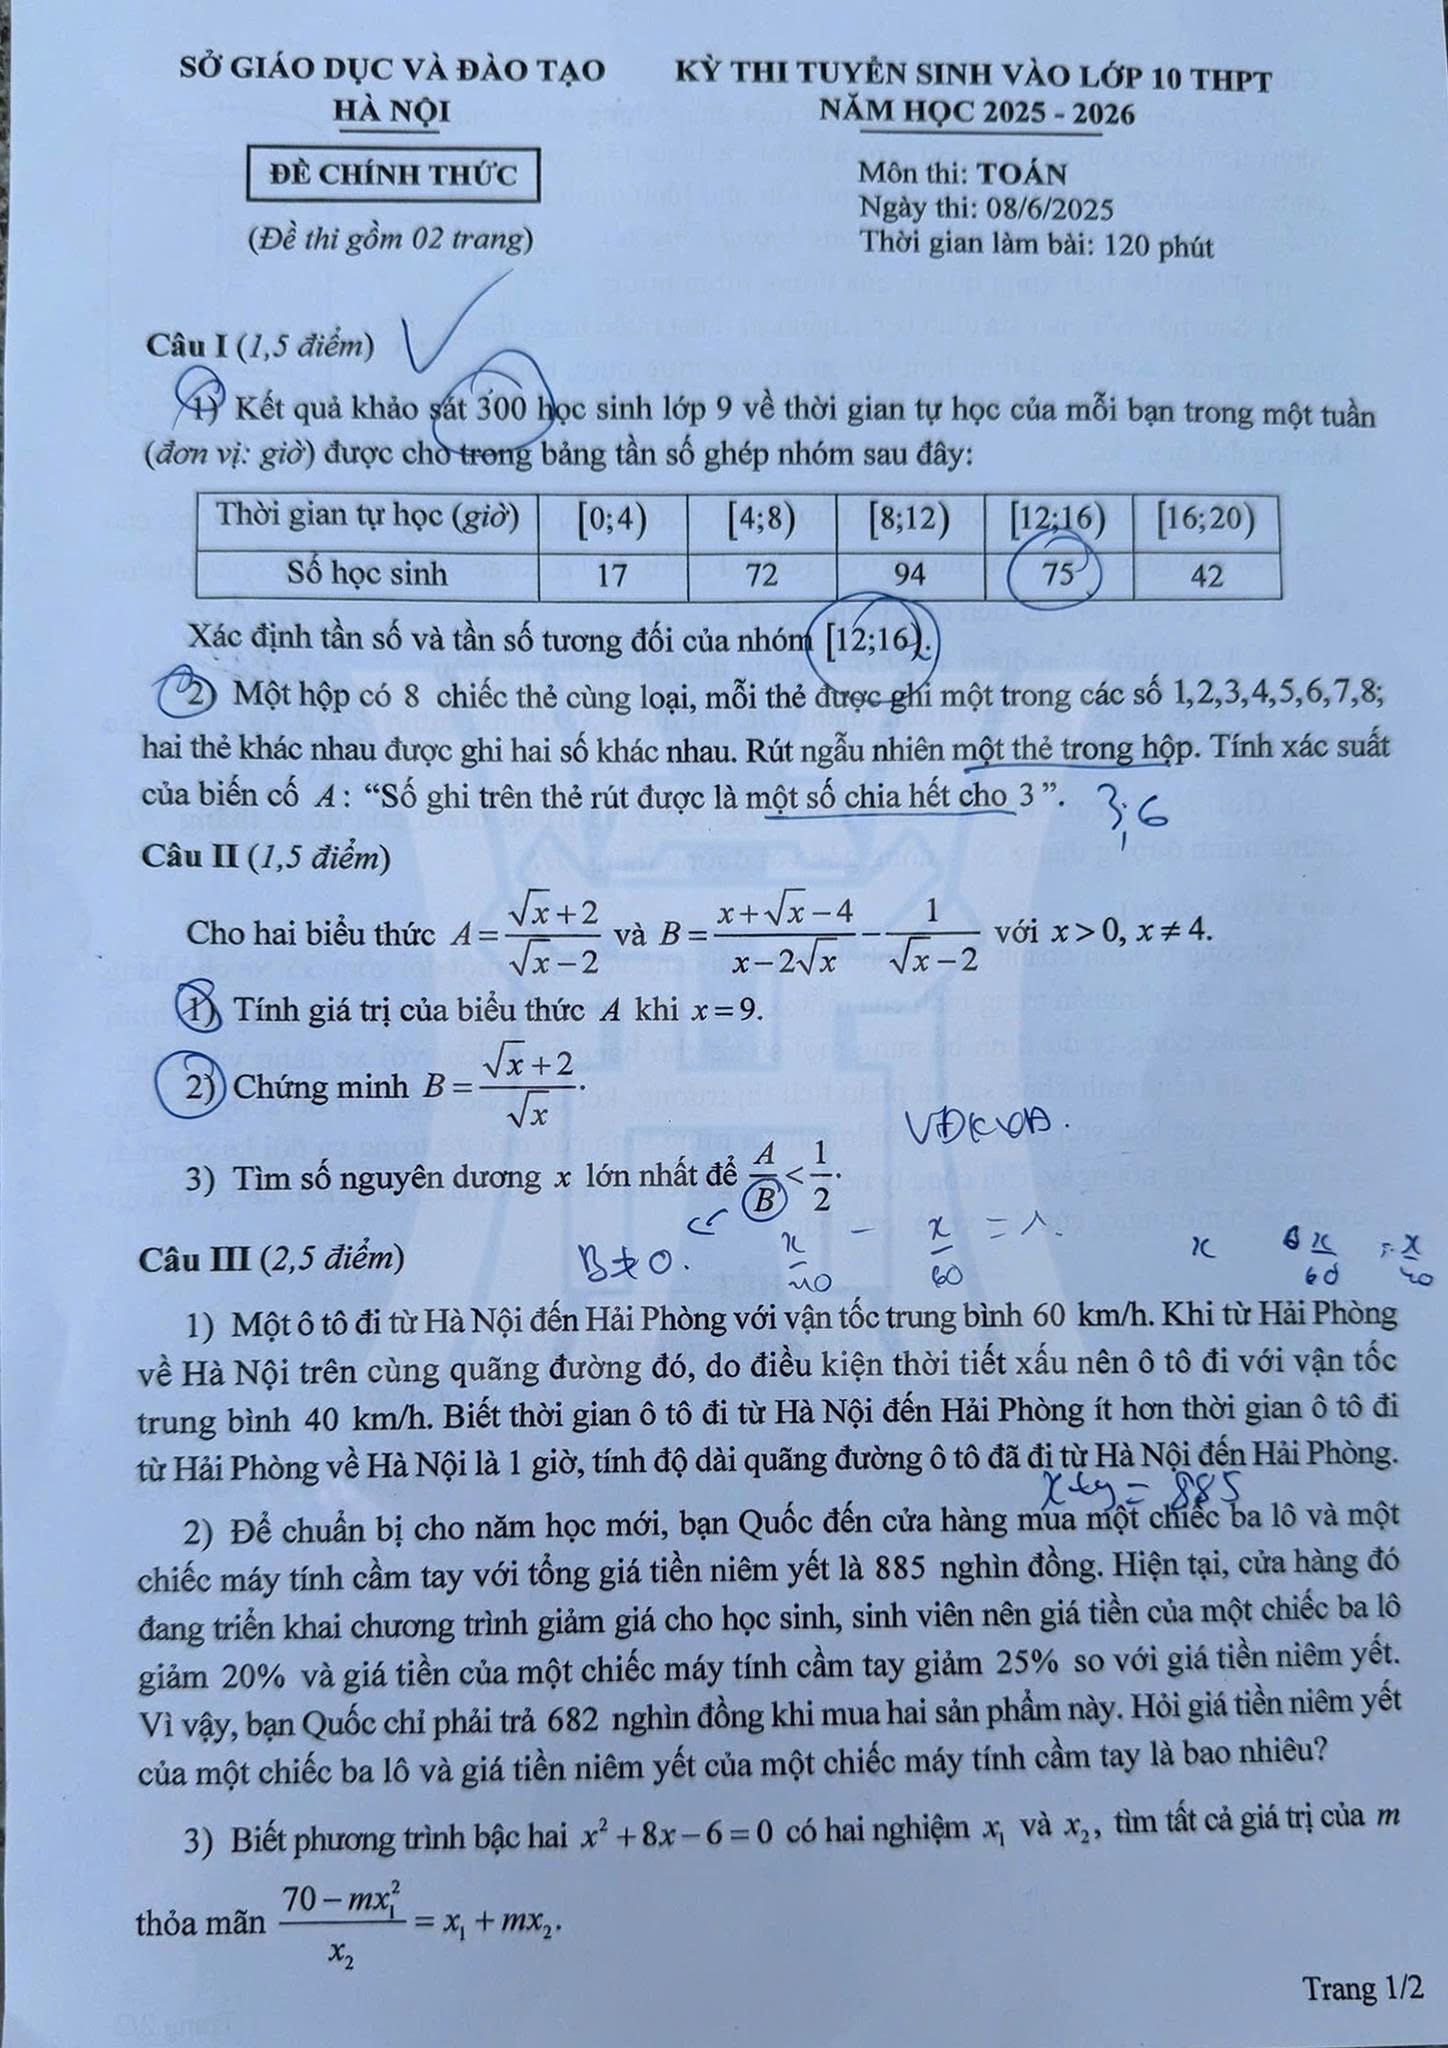 SỞ GIÁO DỤC VÀ ĐÀO TẠO
HÀ NỘI
ĐỀ CHÍNH THỨC
(Đề thi gồm 02 trang)
KỲ THI TUYỂN SINH VÀO LỚP 10 THPT
NĂM HỌC 2025 - 2026
Môn thi: TOÁN
Ngày thi: 08/6/2025
Thời gian làm bài: 120 phút
Câu I (1,5 điểm)
1) Kết quả khảo sát 300 học sinh lớp 9 về thời gian tự học của mỗi bạn trong một tuần
(đơn vị: giờ) được cho trong bảng tần số ghép nhóm sau đây:
Thời gian tự học (giờ) [0;4) [4;8) [8;12) [12;16) [16;20)
Số học sinh 17 72 94 75 42
Xác định tần số và tần số tương đối của nhóm [12;16).
2) Một hộp có 8 chiếc thẻ cùng loại, mỗi thẻ được ghi một trong các số 1,2,3,4,5,6,7,8;
hai thẻ khác nhau được ghi hai số khác nhau. Rút ngẫu nhiên một thẻ trong hộp. Tính xác suất
của biến cố A: “Số ghi trên thẻ rút được là một số chia hết cho 3”. 3;6
Câu II (1,5 điểm)
Cho hai biểu thức A = (√x + 2)/(√x − 2) và B = (x + √x − 4)/(x − 2√x) − 1/(√x − 2) với x > 0, x ≠ 4.
1) Tính giá trị của biểu thức A khi x = 9.
2) Chứng minh B = (√x + 2)/√x.
3) Tìm số nguyên dương x lớn nhất để A/B < 1/2.
B ≠ 0. x/40 − x/60 = 1. x x/60 x/40
Câu III (2,5 điểm)
1) Một ô tô đi từ Hà Nội đến Hải Phòng với vận tốc trung bình 60 km/h. Khi từ Hải Phòng
về Hà Nội trên cùng quãng đường đó, do điều kiện thời tiết xấu nên ô tô đi với vận tốc
trung bình 40 km/h. Biết thời gian ô tô đi từ Hà Nội đến Hải Phòng ít hơn thời gian ô tô đi
từ Hải Phòng về Hà Nội là 1 giờ, tính độ dài quãng đường ô tô đã đi từ Hà Nội đến Hải Phòng.
x+y = 885
2) Để chuẩn bị cho năm học mới, bạn Quốc đến cửa hàng mua một chiếc ba lô và một
chiếc máy tính cầm tay với tổng giá tiền niêm yết là 885 nghìn đồng. Hiện tại, cửa hàng đó
đang triển khai chương trình giảm giá cho học sinh, sinh viên nên giá tiền của một chiếc ba lô
giảm 20% và giá tiền của một chiếc máy tính cầm tay giảm 25% so với giá tiền niêm yết.
Vì vậy, bạn Quốc chỉ phải trả 682 nghìn đồng khi mua hai sản phẩm này. Hỏi giá tiền niêm yết
của một chiếc ba lô và giá tiền niêm yết của một chiếc máy tính cầm tay là bao nhiêu?
3) Biết phương trình bậc hai x² + 8x − 6 = 0 có hai nghiệm x₁ và x₂, tìm tất cả giá trị của m
thỏa mãn (70 − mx₁²)/x₂ = x₁ + mx₂.
Trang 1/2